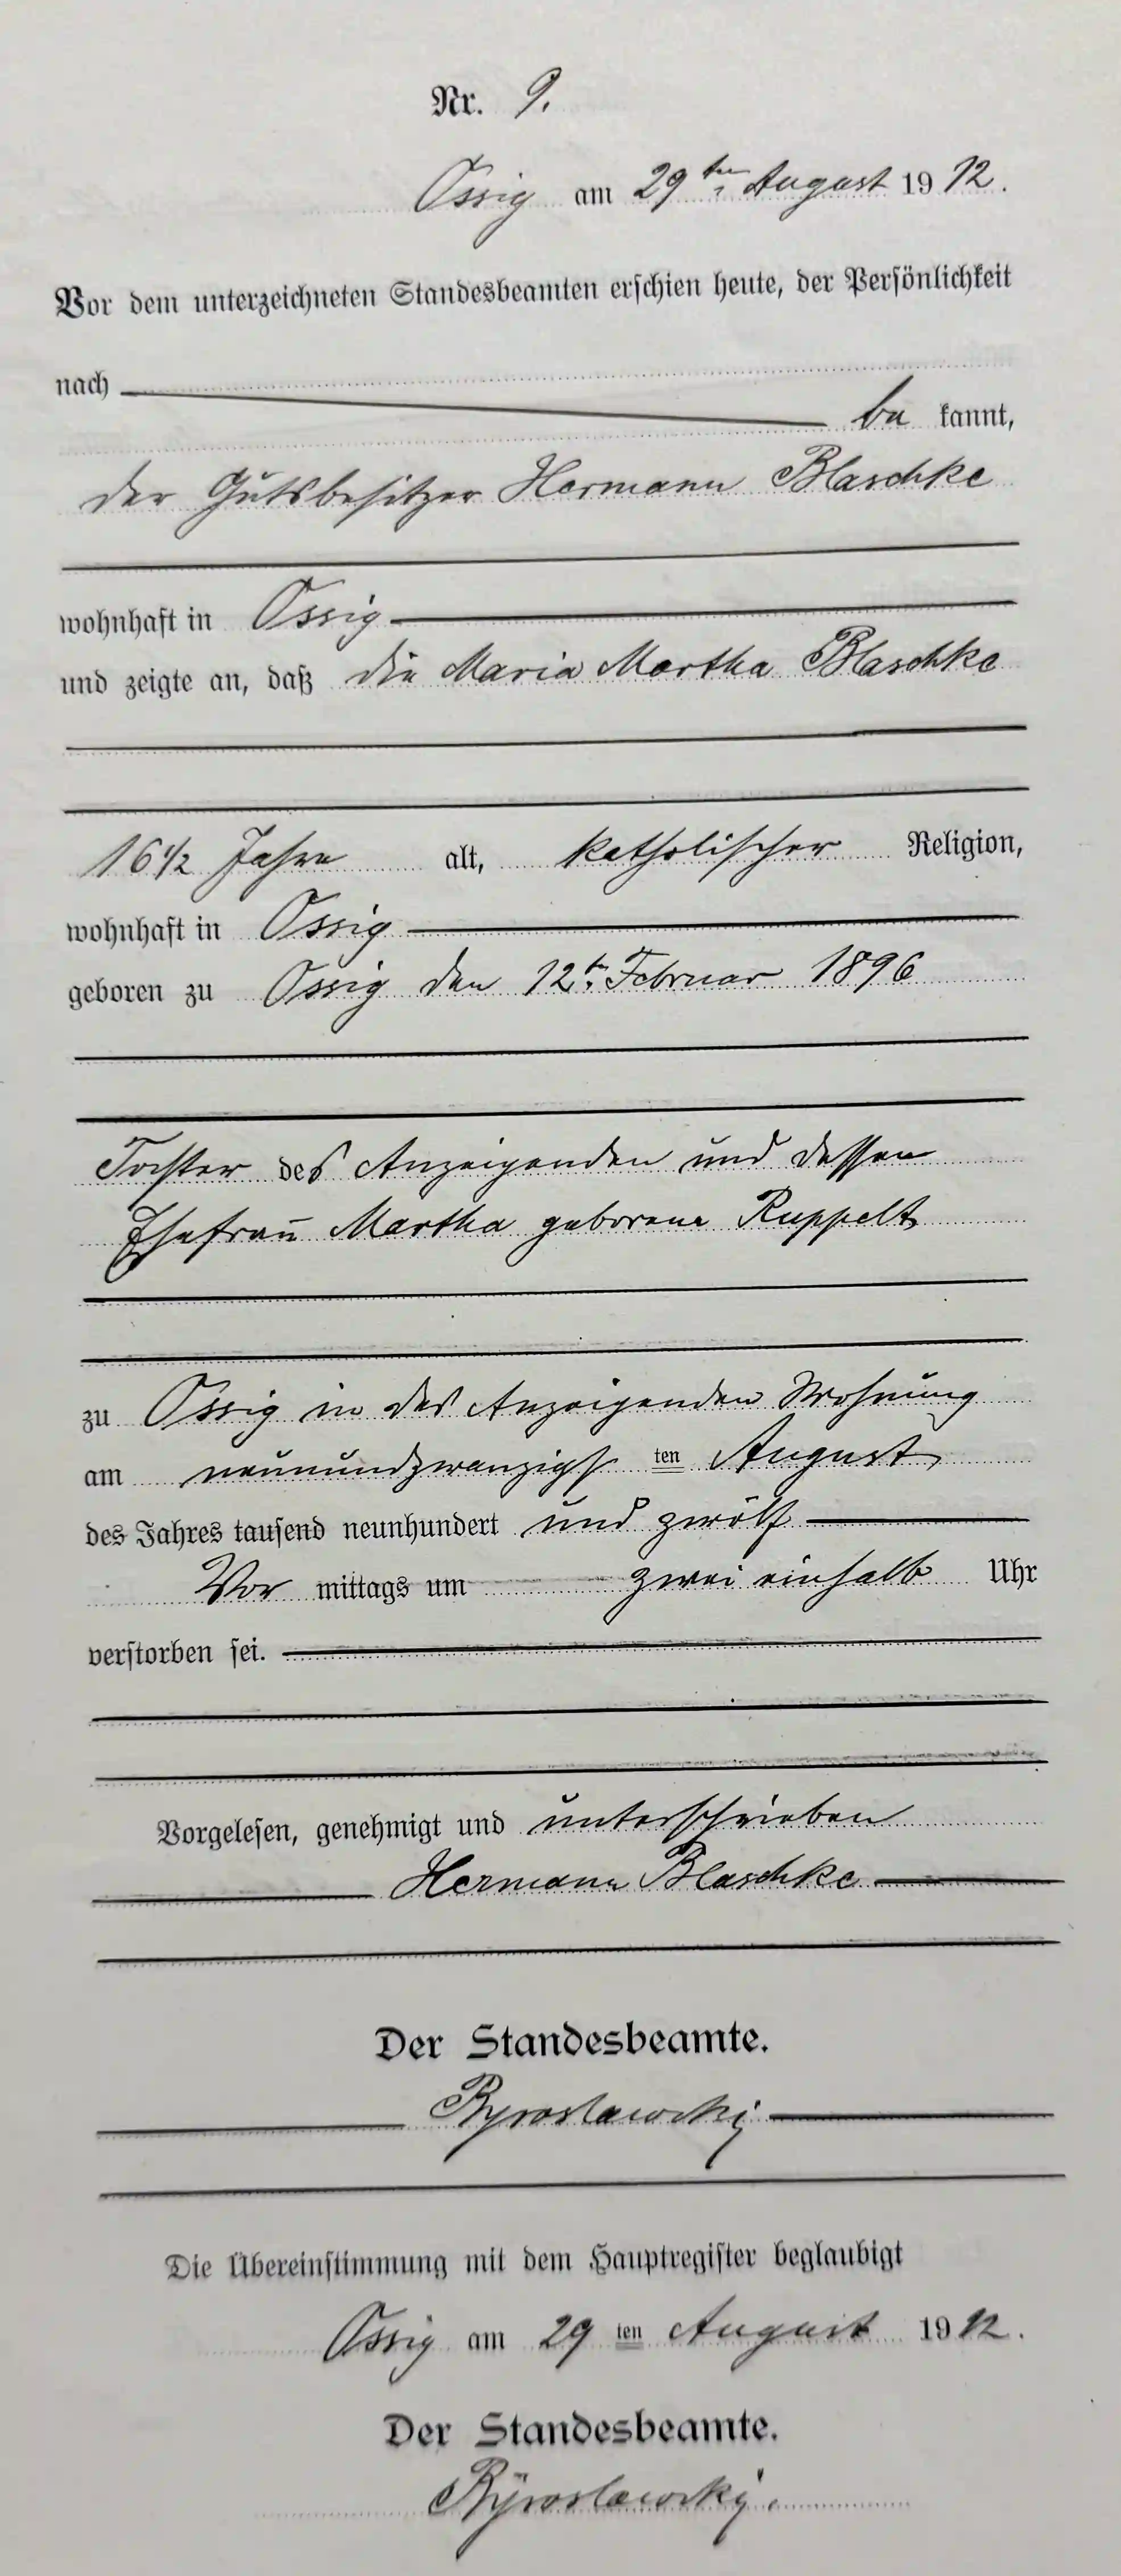 Nr. 9.
Ossig am 29ten August 1912.
Vor dem unterzeichneten Standesbeamten erschien heute, der Persönlichkeit
nach
be kannt,
der Gutsbesitzer Hermann Blaschke
wohnhaft in Ossig
und zeigte an, daß die Maria Martha Blaschke
16 1/2 Jahre alt, katholischer Religion,
wohnhaft in Ossig
geboren zu Ossig den 12t. Februar 1896
Tochter des Anzeigenden und dessen
Ehefrau Martha geborene Ruppelt
zu Ossig in des Anzeigenden Wohnung
am neunundzwanzigsten August
des Jahres tausend neunhundert und zwölf
Vor mittags um zwei einhalb Uhr
verstorben sei.
Vorgelesen, genehmigt und unterschrieben
Hermann Blaschke
Der Standesbeamte.
Die Übereinstimmung mit dem Hauptregister beglaubigt
Ossig am 29 ten August 1912.
Der Standesbeamte.